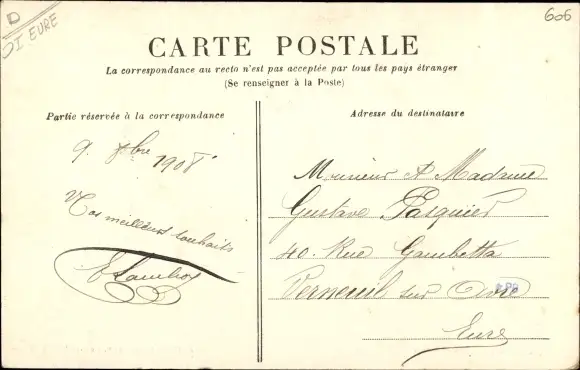 D
OI EURE
606
CARTE POSTALE
La correspondance au recto n'est pas acceptée par tous les pays étranger
(Se renseigner à la Poste)
Partie réservée à la correspondance
Adresse du destinataire
9. xbre 1908
Vos meilleurs souhaits
Monsieur & Madame
Gustave Pasquier
40. Rue Gambetta
Verneuil sur Avre
Eure